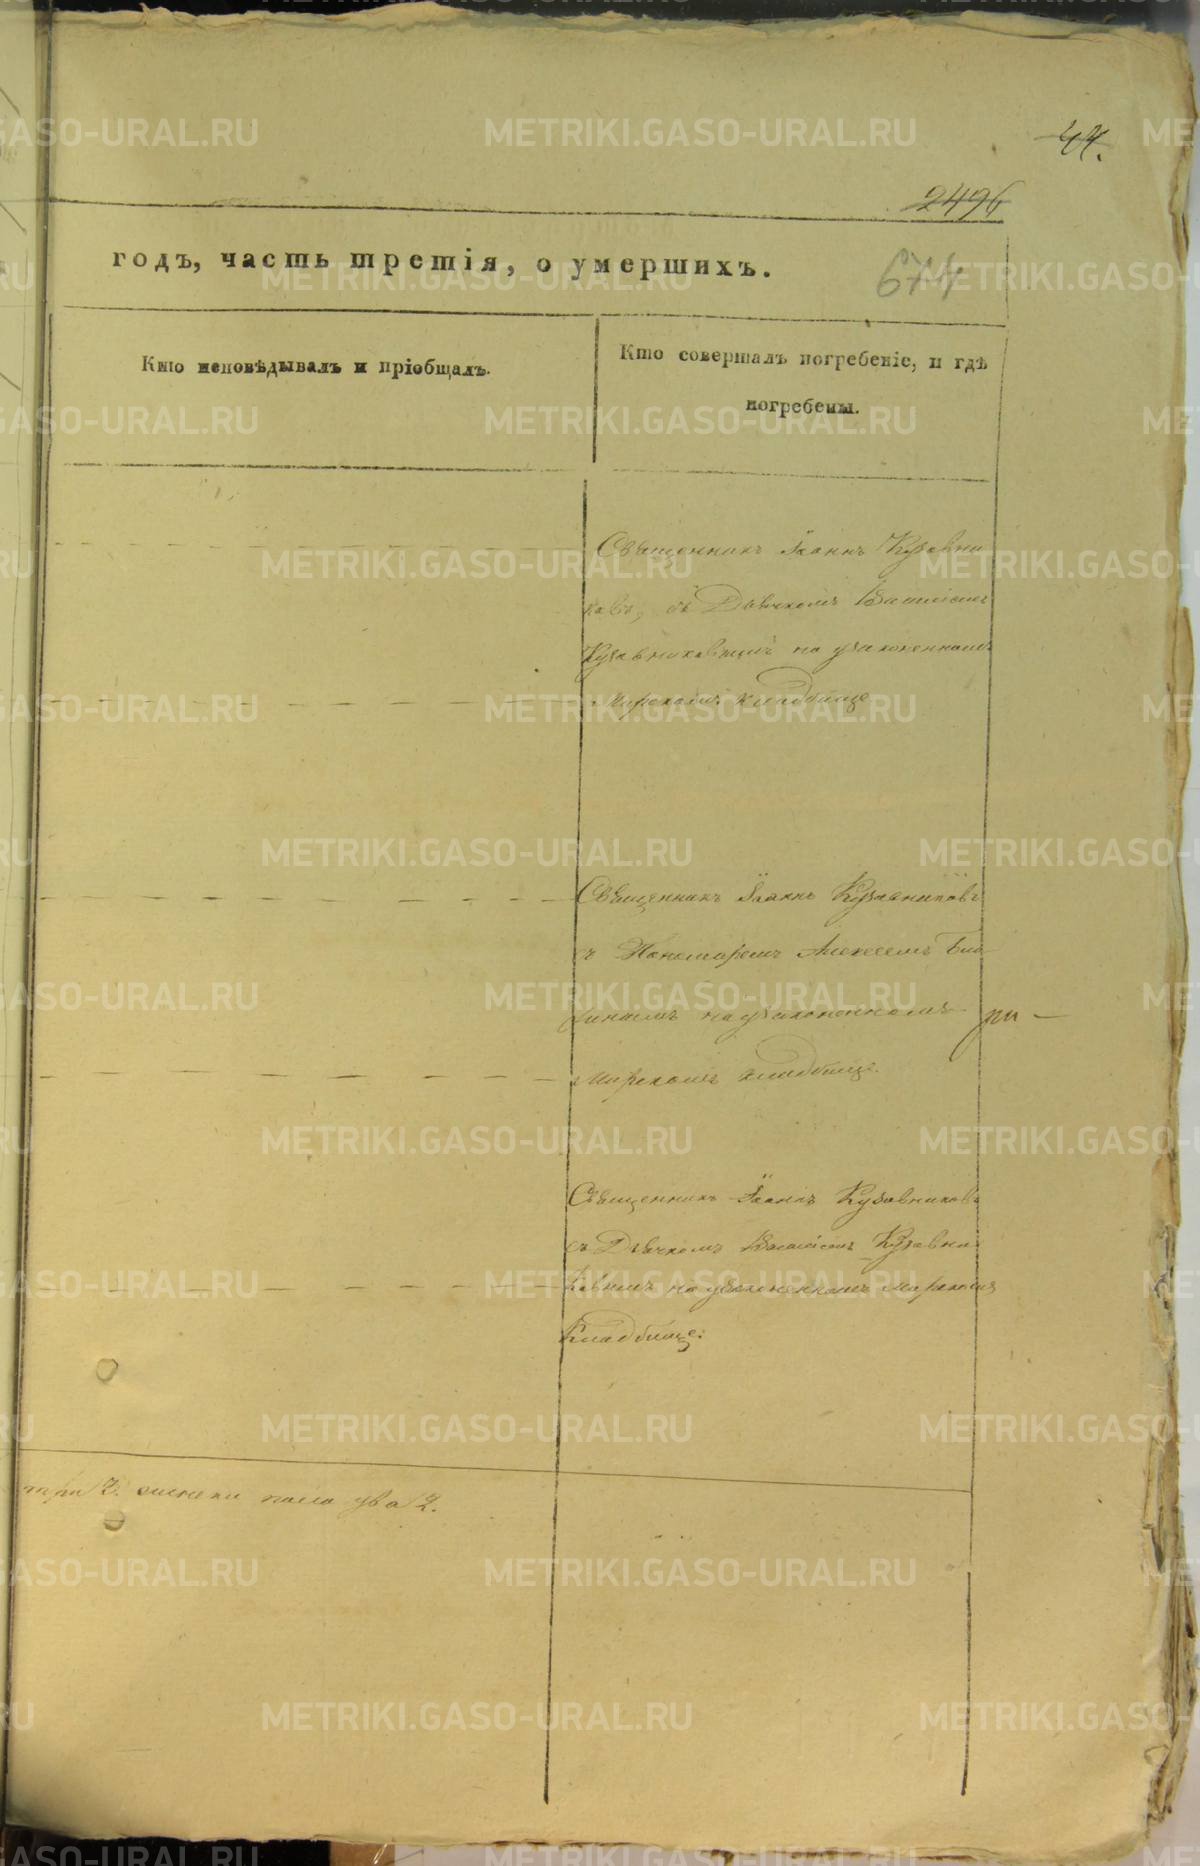 47.
2496
674
годъ, часть третія, о умершихъ.
Кто исповѣдывалъ и пріобщалъ.
Кто совершалъ погребеніе, и гдѣ
погребены.
Священникъ Іоаннъ Кузовни
ковъ, съ Дьячкомъ Василіемъ
Кузовниковымъ на узаконенномъ
Мирскомъ кладбище
Священникъ Іоаннъ Кузовниковъ
съ Пономаремъ Алексеемъ
на узаконенномъ
Мирскомъ кладбище.
Священникъ Іоаннъ Кузовниковъ
съ Дьячкомъ Василіемъ Кузовни
ковымъ на узаконенномъ Мирскомъ
Кладбище.
женска пола два 2.
METRIKI.GASO-URAL.RU